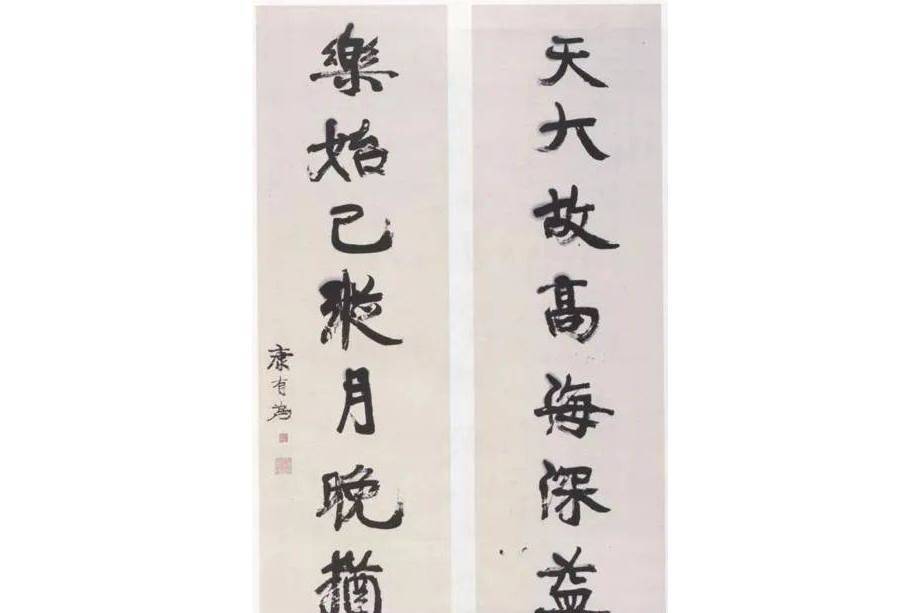 天大故高海深益
樂始已縱月晚猶
康有為